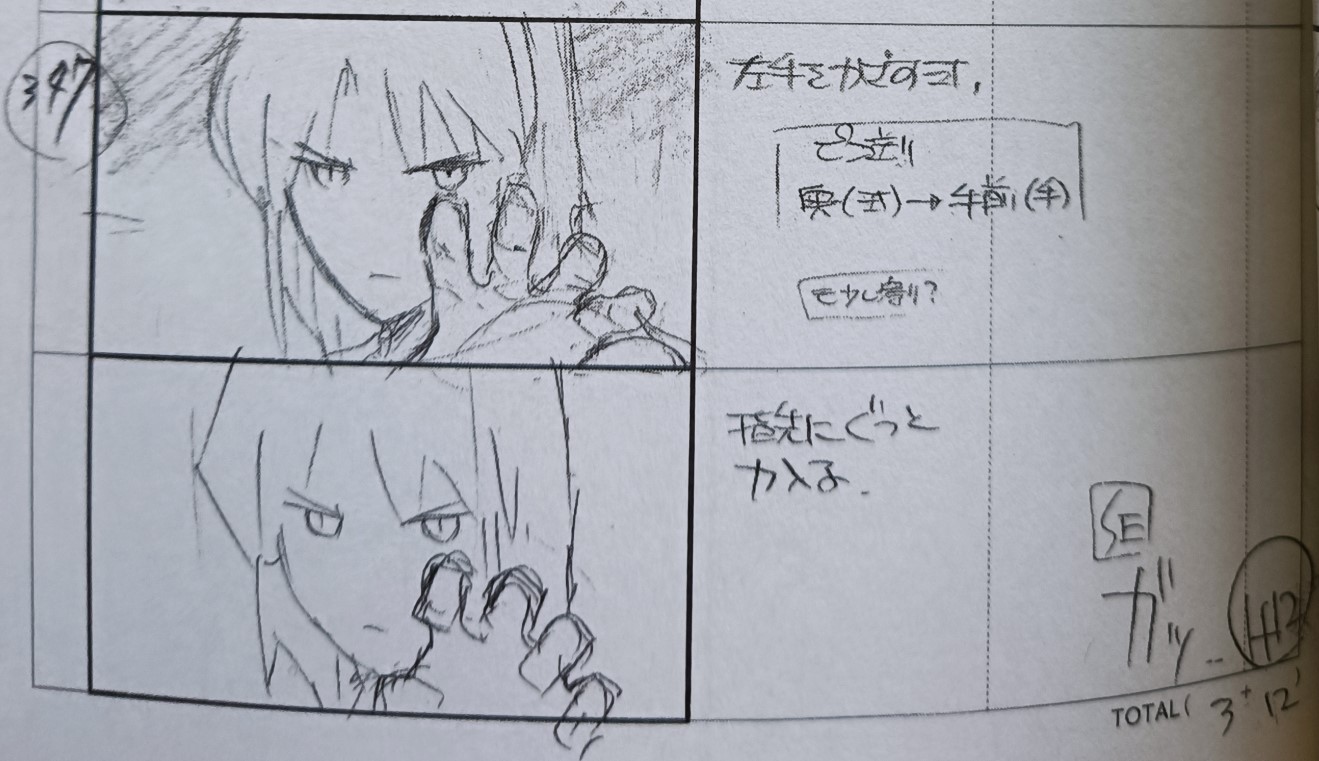 347
左手をかざす式,
ピン送り
奥(式)→手前(手)
もう少し寄り?
指先にぐっと
力入る.
SE
ガッ..
1+12
TOTAL( 3+12'